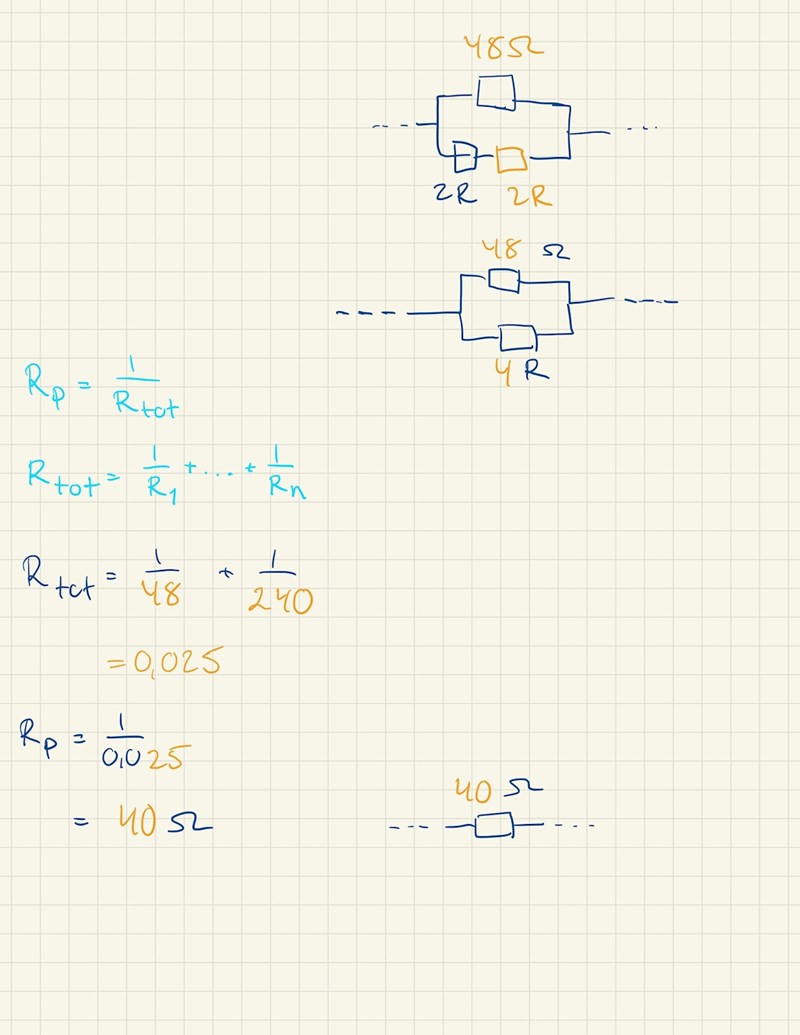 48Ω
2R 2R
48 Ω
4R
Rp = 1/Rtot
Rtot = 1/R1 + ... + 1/Rn
Rtot = 1/48 + 1/240
= 0,025
Rp = 1/0,025
= 40 Ω
40 Ω